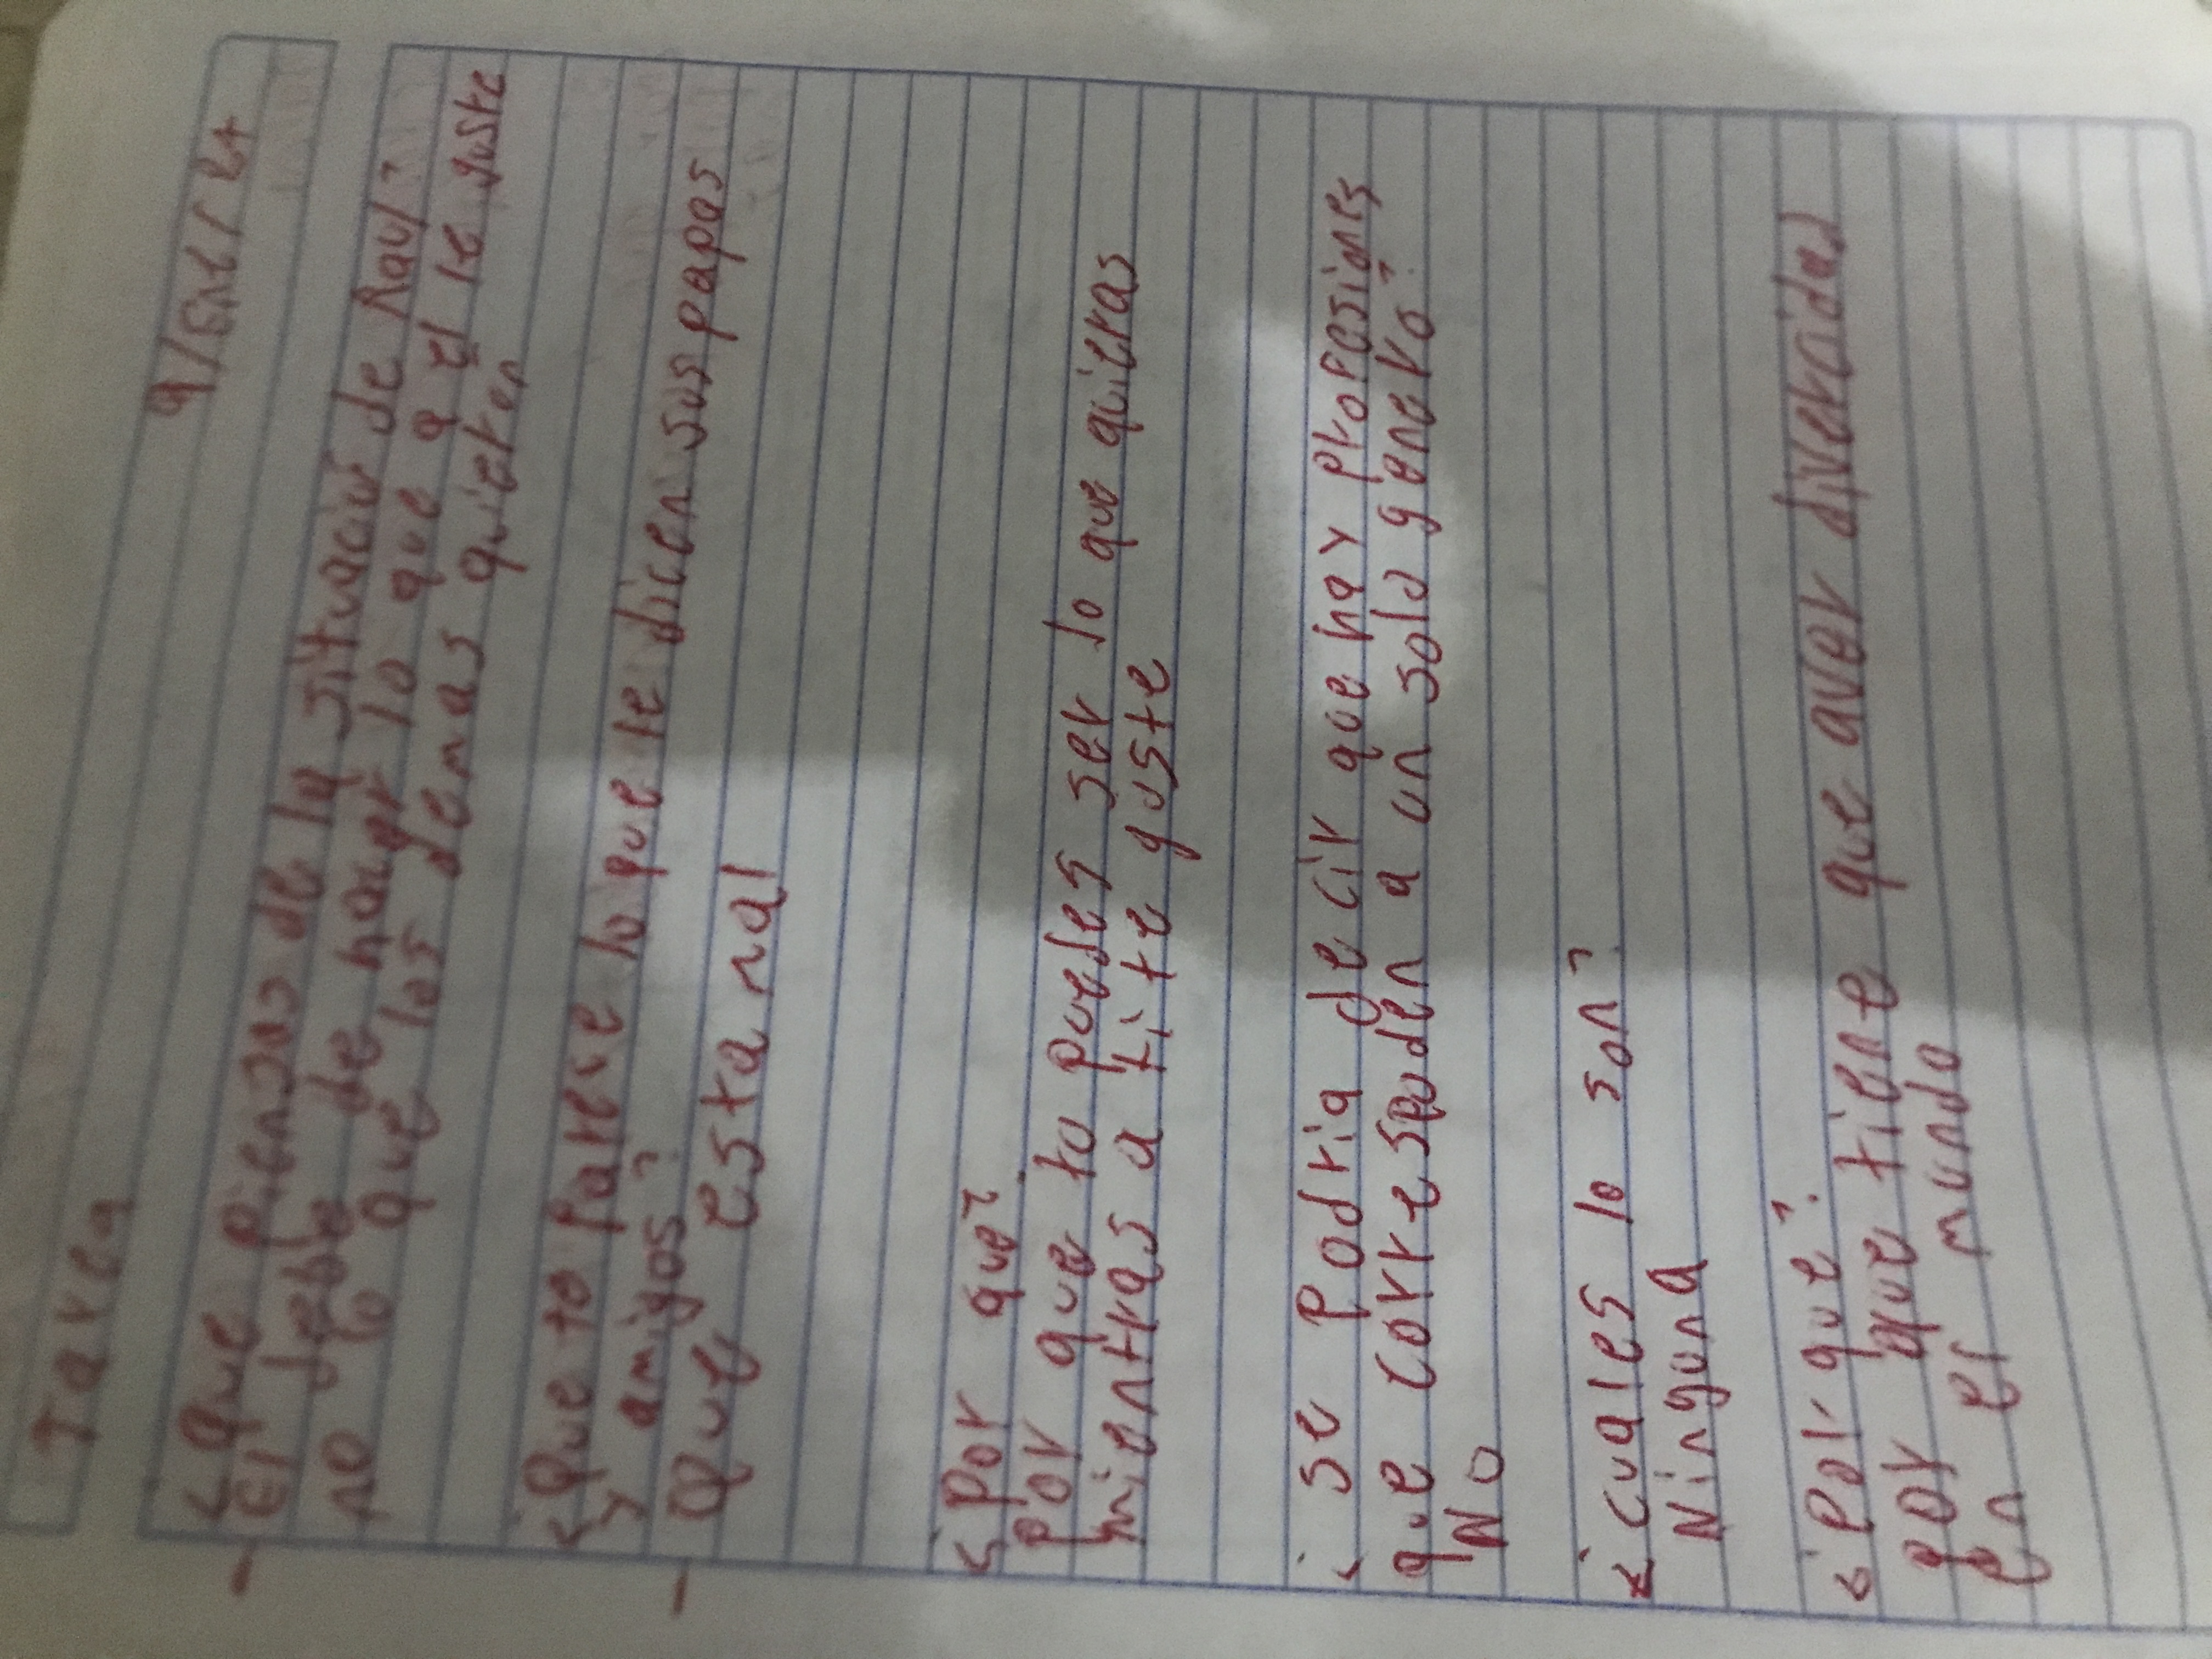 Tarea
9/Ene/24
¿que piensas de la situación de Raul?
El debe de hacer lo que a el le guste
no lo que los demas quieran
¿Que te parece lo que le dicen sus papas
y amigos?
Que esta mal
¿Por qué?
Por que tu puedes ser lo que quieras
mientras a ti te guste
¿se Podria decir que hay profesiones
que correspoden a un solo genero?
No
¿cuales lo son?
Ninguna
¿Por qué?
por que tiene que aver diversidad
en el mundo